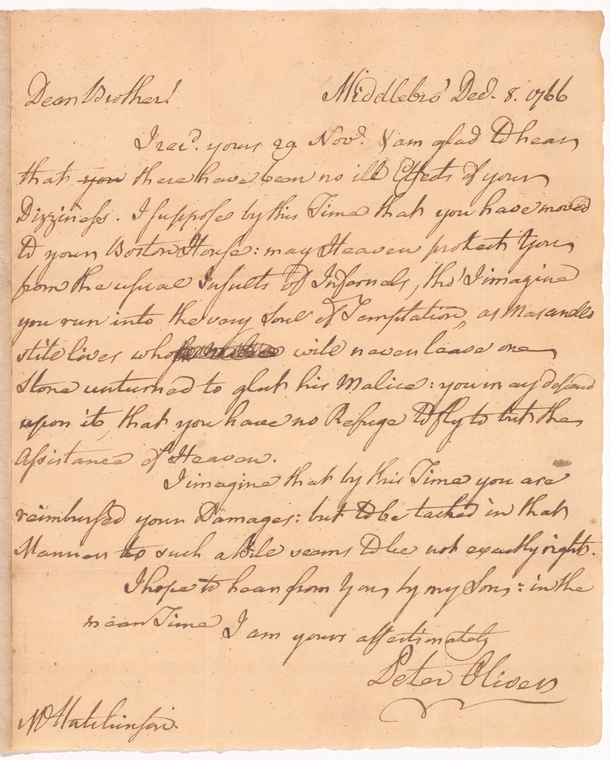 Dear Brother! Middlebro' Decr. 8. 1766
I recd. yours 29 Novr. & am glad to hear
that you there have been no ill Effects of your
Dizziness. I suppose by this Time that you have moved
to your Boston House: may Heaven protect You
from the usual Insults of Infernals, tho' I imagine
you run into the very Soul of Temptation, as Masanello
still lives who will never leave one
Stone unturned to glut his Malice: you may depend
upon it, that you have no Refuge to fly to but the
Assistance of Heaven.
I imagine that by this Time you are
reimbursed your Damages: but to be tacked in that
Manner to such a Bile seems to be not exactly right.
I hope to hear from You by my Sons: in the
mean Time I am yours affectionately
Peter Oliver
Mr Hutchinson.